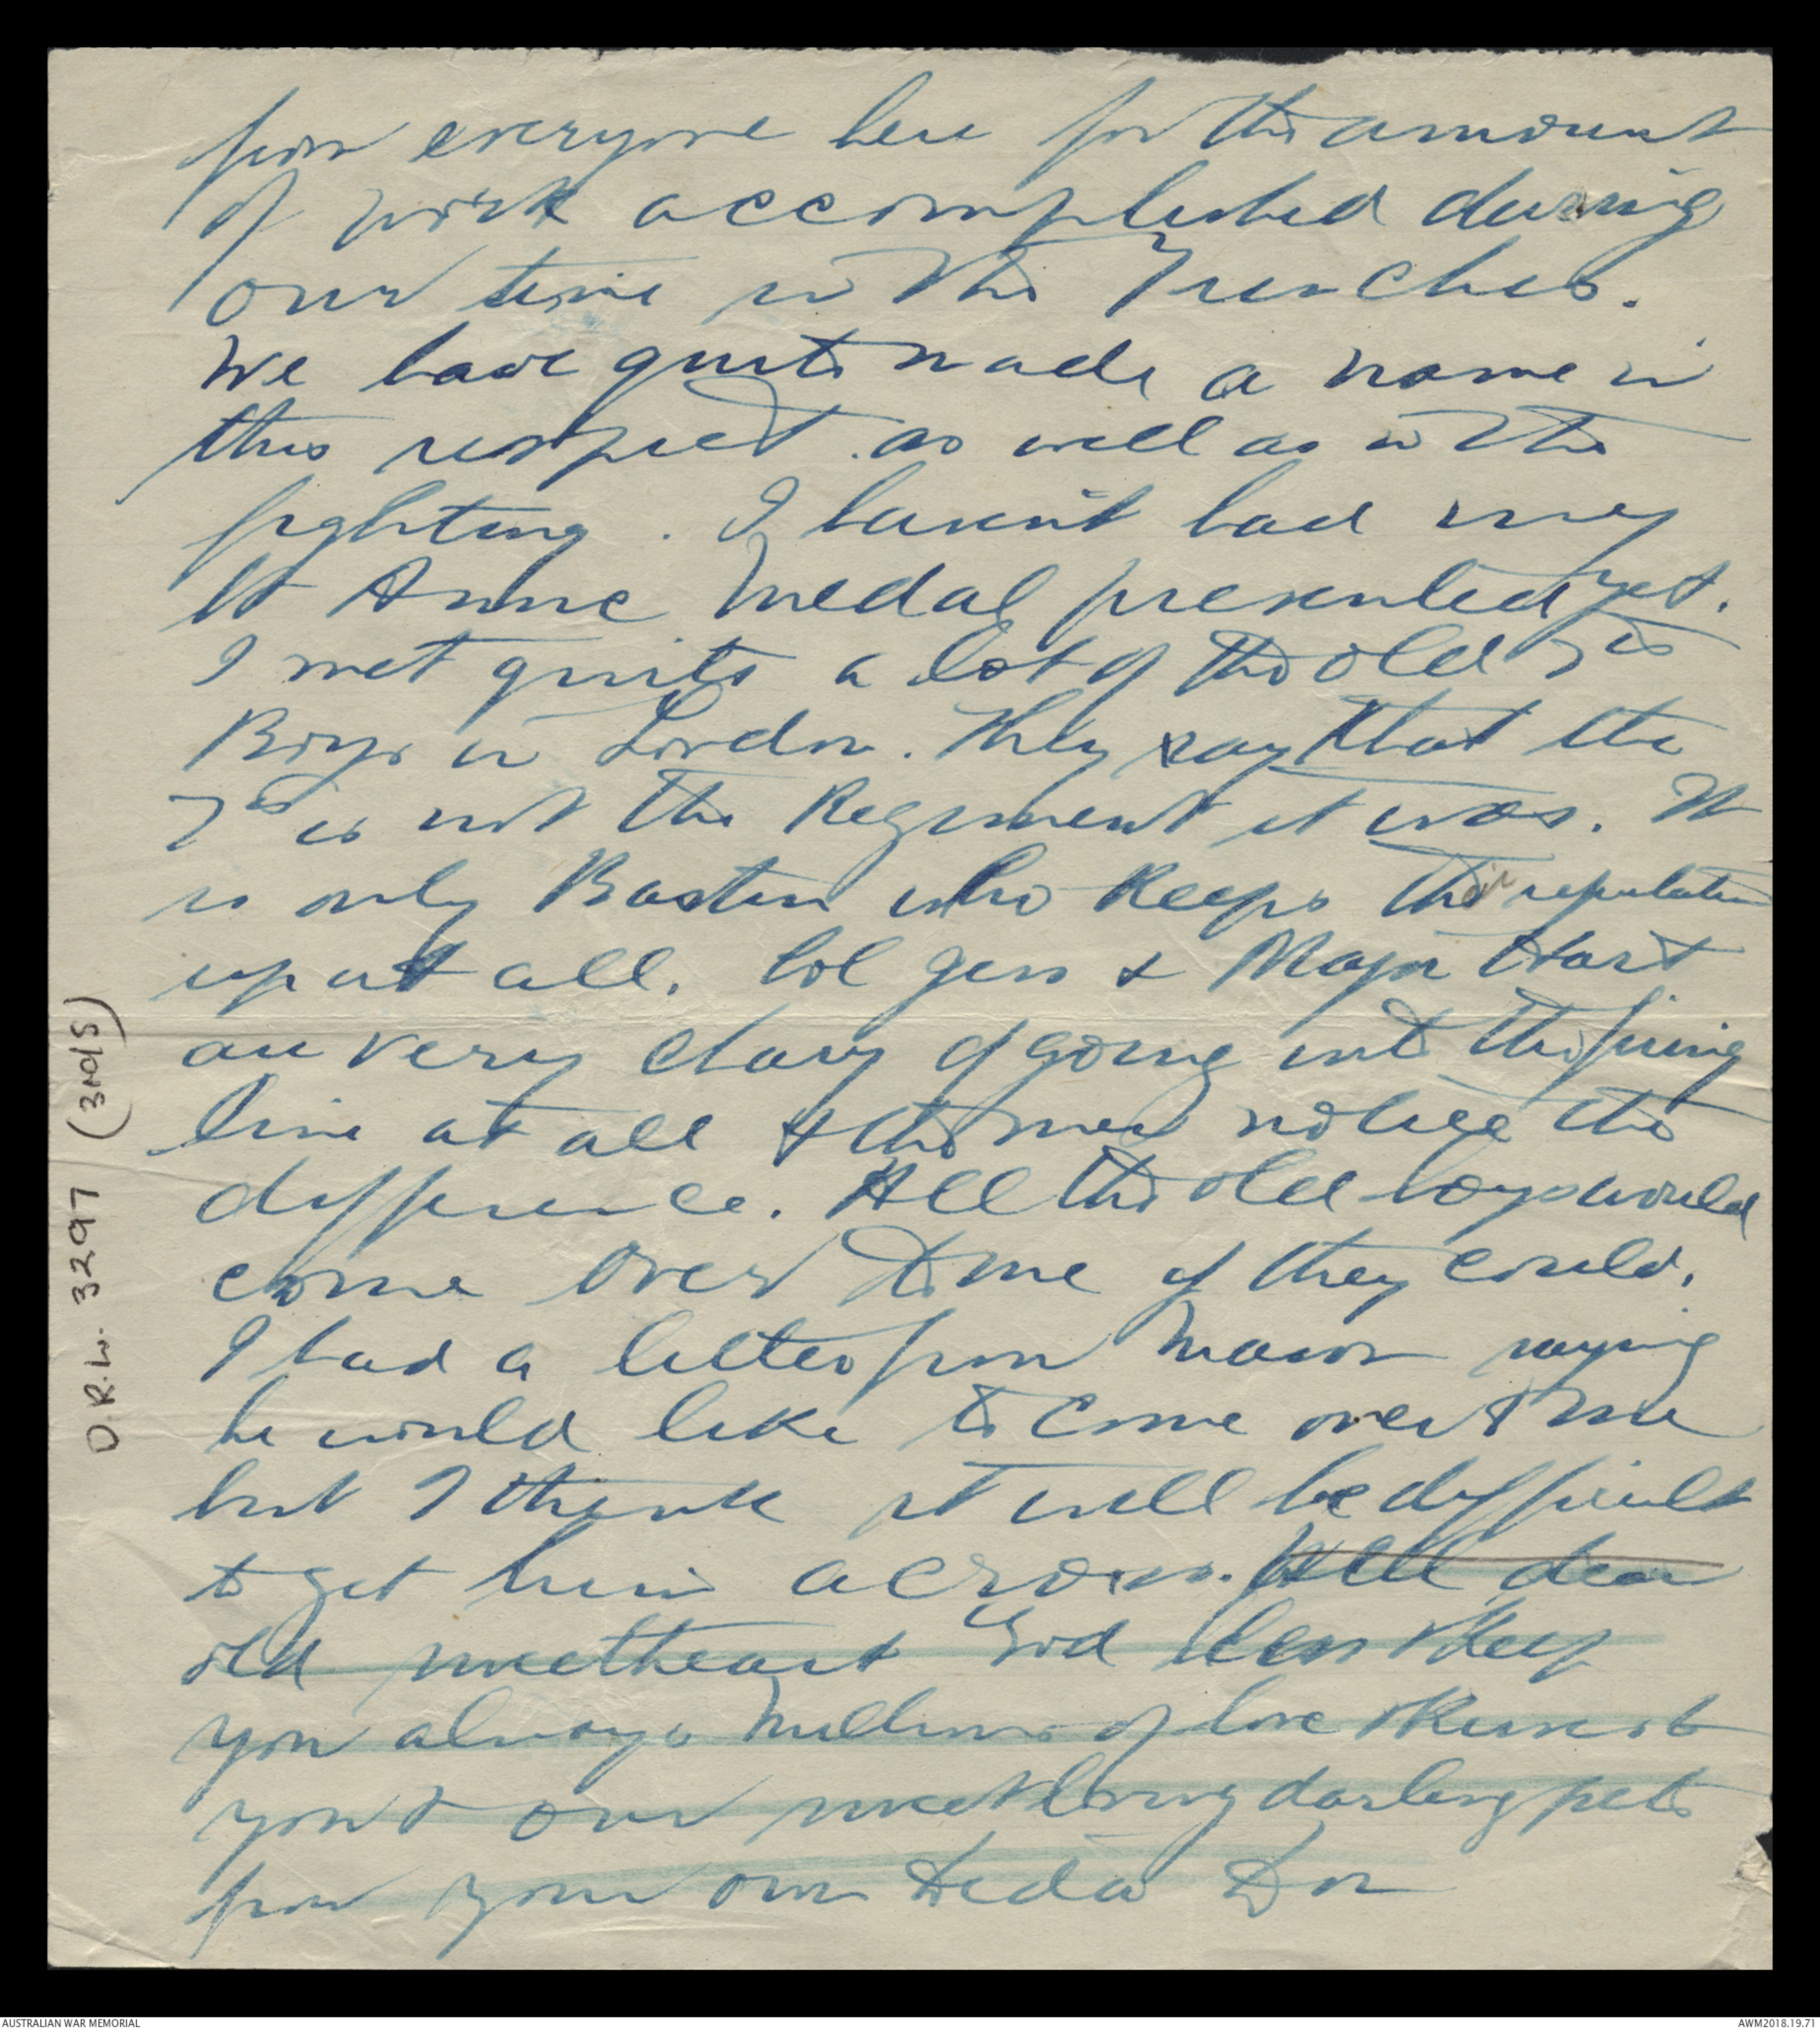 from everyone here for the amount
of work accomplished during
our time in the Trenches.
We have quite made a name in
this respect as well as in the
fighting. I havn't had my
St Anne Medal presented yet.
I met quite a lot of the old 7th
Boys in London. They say that the
7th is not the Regiment it was. It
is only Bastin who keeps their reputation
up at all. Col Jess & Major Hart
are very chary of going into the firing
line at all & the men notice the
difference. All the old boys would
come over to me if they could.
I had a letter from Mason saying
he would like to come over to me
but I think it will be difficult
to get him across. Well dear
old sweetheart God bless & keep
you always Millions of love & kisses to
you & our sweet loving darling pets
from your own Dida Don
D.R.L. 3297 (3rdS)
AUSTRALIAN WAR MEMORIAL
AWM2018.19.71